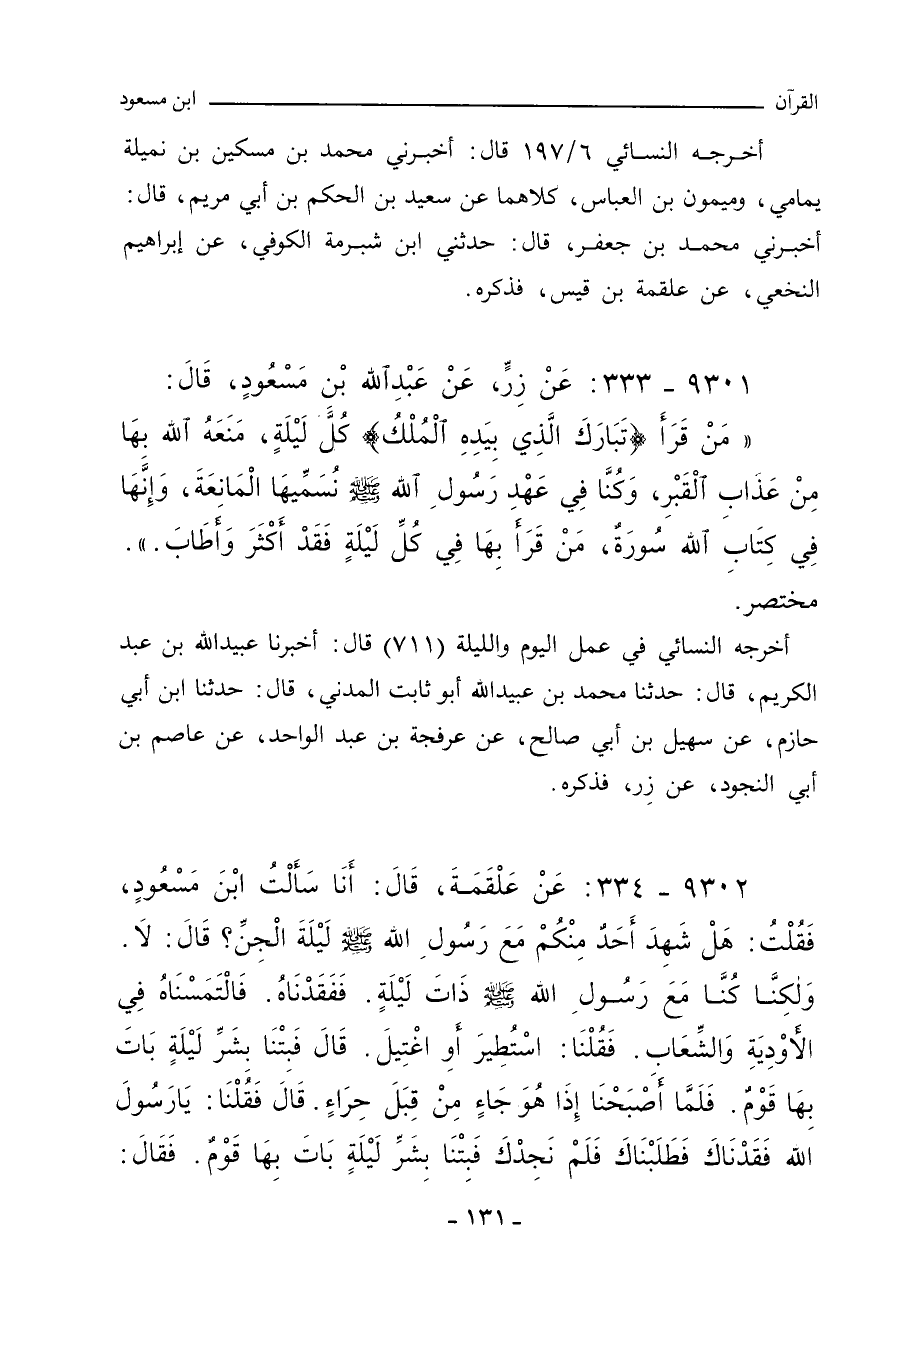 القرآن ــــــــــــــــــــــــــــــــــ ابن مسعود
أخـرجـه النسـائي ١٩٧/٦ قال: أخبـرني محمد بن مسكين بن نميلة
يمامي، وميمون بن العباس، كلاهما عن سعيد بن الحكم بن أبي مريم، قال:
أخبـرني محمـد بن جعفـر، قال: حدثني ابن شبـرمة الكوفي، عن إبراهيم
النخعي، عن علقمة بن قيس، فذكره.
٩٣٠١ ـ ٣٣٣: عَنْ زِرٍّ، عَنْ عَبْدِٱلله بْنِ مَسْعُودٍ، قَالَ:
« مَنْ قَرَأَ ﴿تَبَارَكَ الَّذِي بِيَدِهِ ٱلْمُلْكُ﴾ كُلَّ لَيْلَةٍ، مَنَعَهُ ٱلله بِهَا
مِنْ عَذَابِ ٱلْقَبْرِ، وَكُنَّا فِي عَهْدِ رَسُولِ ٱلله ﷺ نُسَمِّيهَا الْمَانِعَةَ، وَإِنَّهَا
فِي كِتَابِ ٱلله سُورَةٌ، مَنْ قَرَأَ بِهَا فِي كُلِّ لَيْلَةٍ فَقَدْ أَكْثَرَ وَأَطَابَ.».
مختصر.
أخرجه النسائي في عمل اليوم والليلة (٧١١) قال: أخبرنا عبيدالله بن عبد
الكريم، قال: حدثنا محمد بن عبيدالله أبو ثابت المدني، قال: حدثنا ابن أبي
حازم، عن سهيل بن أبي صالح، عن عرفجة بن عبد الواحد، عن عاصم بن
أبي النجود، عن زِر، فذكره.
٩٣٠٢ ـ ٣٣٤: عَنْ عَلْقَمَـةَ، قَالَ: أَنَا سَأَلْتُ ابْنَ مَسْعُودٍ،
فَقُلْتُ: هَلْ شَهِدَ أَحَدٌ مِنْكُمْ مَعَ رَسُولِ الله ﷺ لَيْلَةَ الْجِنِّ؟ قَالَ: لَا.
وَلٰكِنَّـا كُنَّـا مَعَ رَسُـولِ الله ﷺ ذَاتَ لَيْلَةٍ. فَفَقَدْنَاهُ. فَالْتَمَسْنَاهُ فِي
الأَوْدِيَةِ وَالشِّعَابِ. فَقُلْنَا: اسْتُطِيرَ أَو اغْتِيلَ. قَالَ فَبِتْنَا بِشَرِّ لَيْلَةٍ بَاتَ
بِهَا قَوْمٌ. فَلَمَّا أَصْبَحْنَا إِذَا هُوَ جَاءٍ مِنْ قِبَلَ حِرَاءٍ. قَالَ فَقُلْنَا: يَارَسُولَ
الله فَقَدْنَاكَ فَطَلَبْنَاكَ فَلَمْ نَجِدْكَ فَبِتْنَا بِشَرِّ لَيْلَةٍ بَاتَ بِهَا قَوْمٌ. فَقَالَ:
ـ ١٣١ ـ